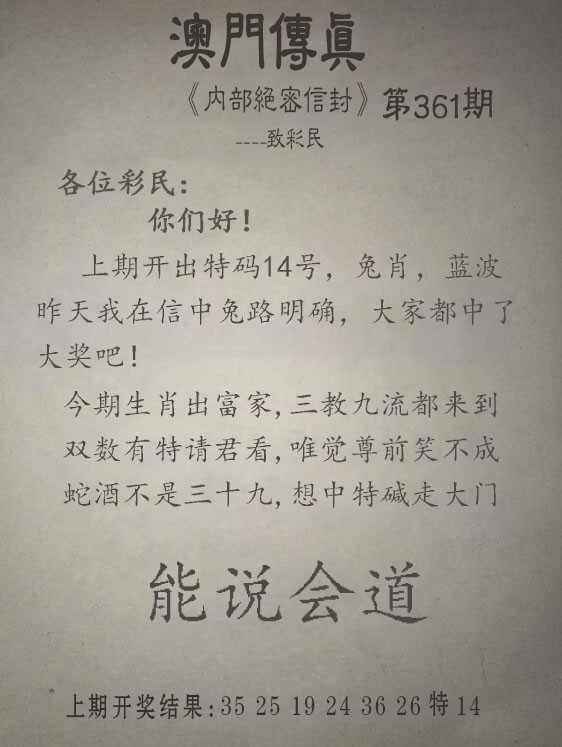 澳門傳眞
《内部絕密信封》第361期
----致彩民
各位彩民：
你们好！
上期开出特码14号，兔肖，蓝波
昨天我在信中兔路明确，大家都中了
大奖吧！
今期生肖出富家,三教九流都来到
双数有特请君看,唯觉尊前笑不成
蛇酒不是三十九,想中特碱走大门
能说会道
上期开奖结果:35 25 19 24 36 26特14